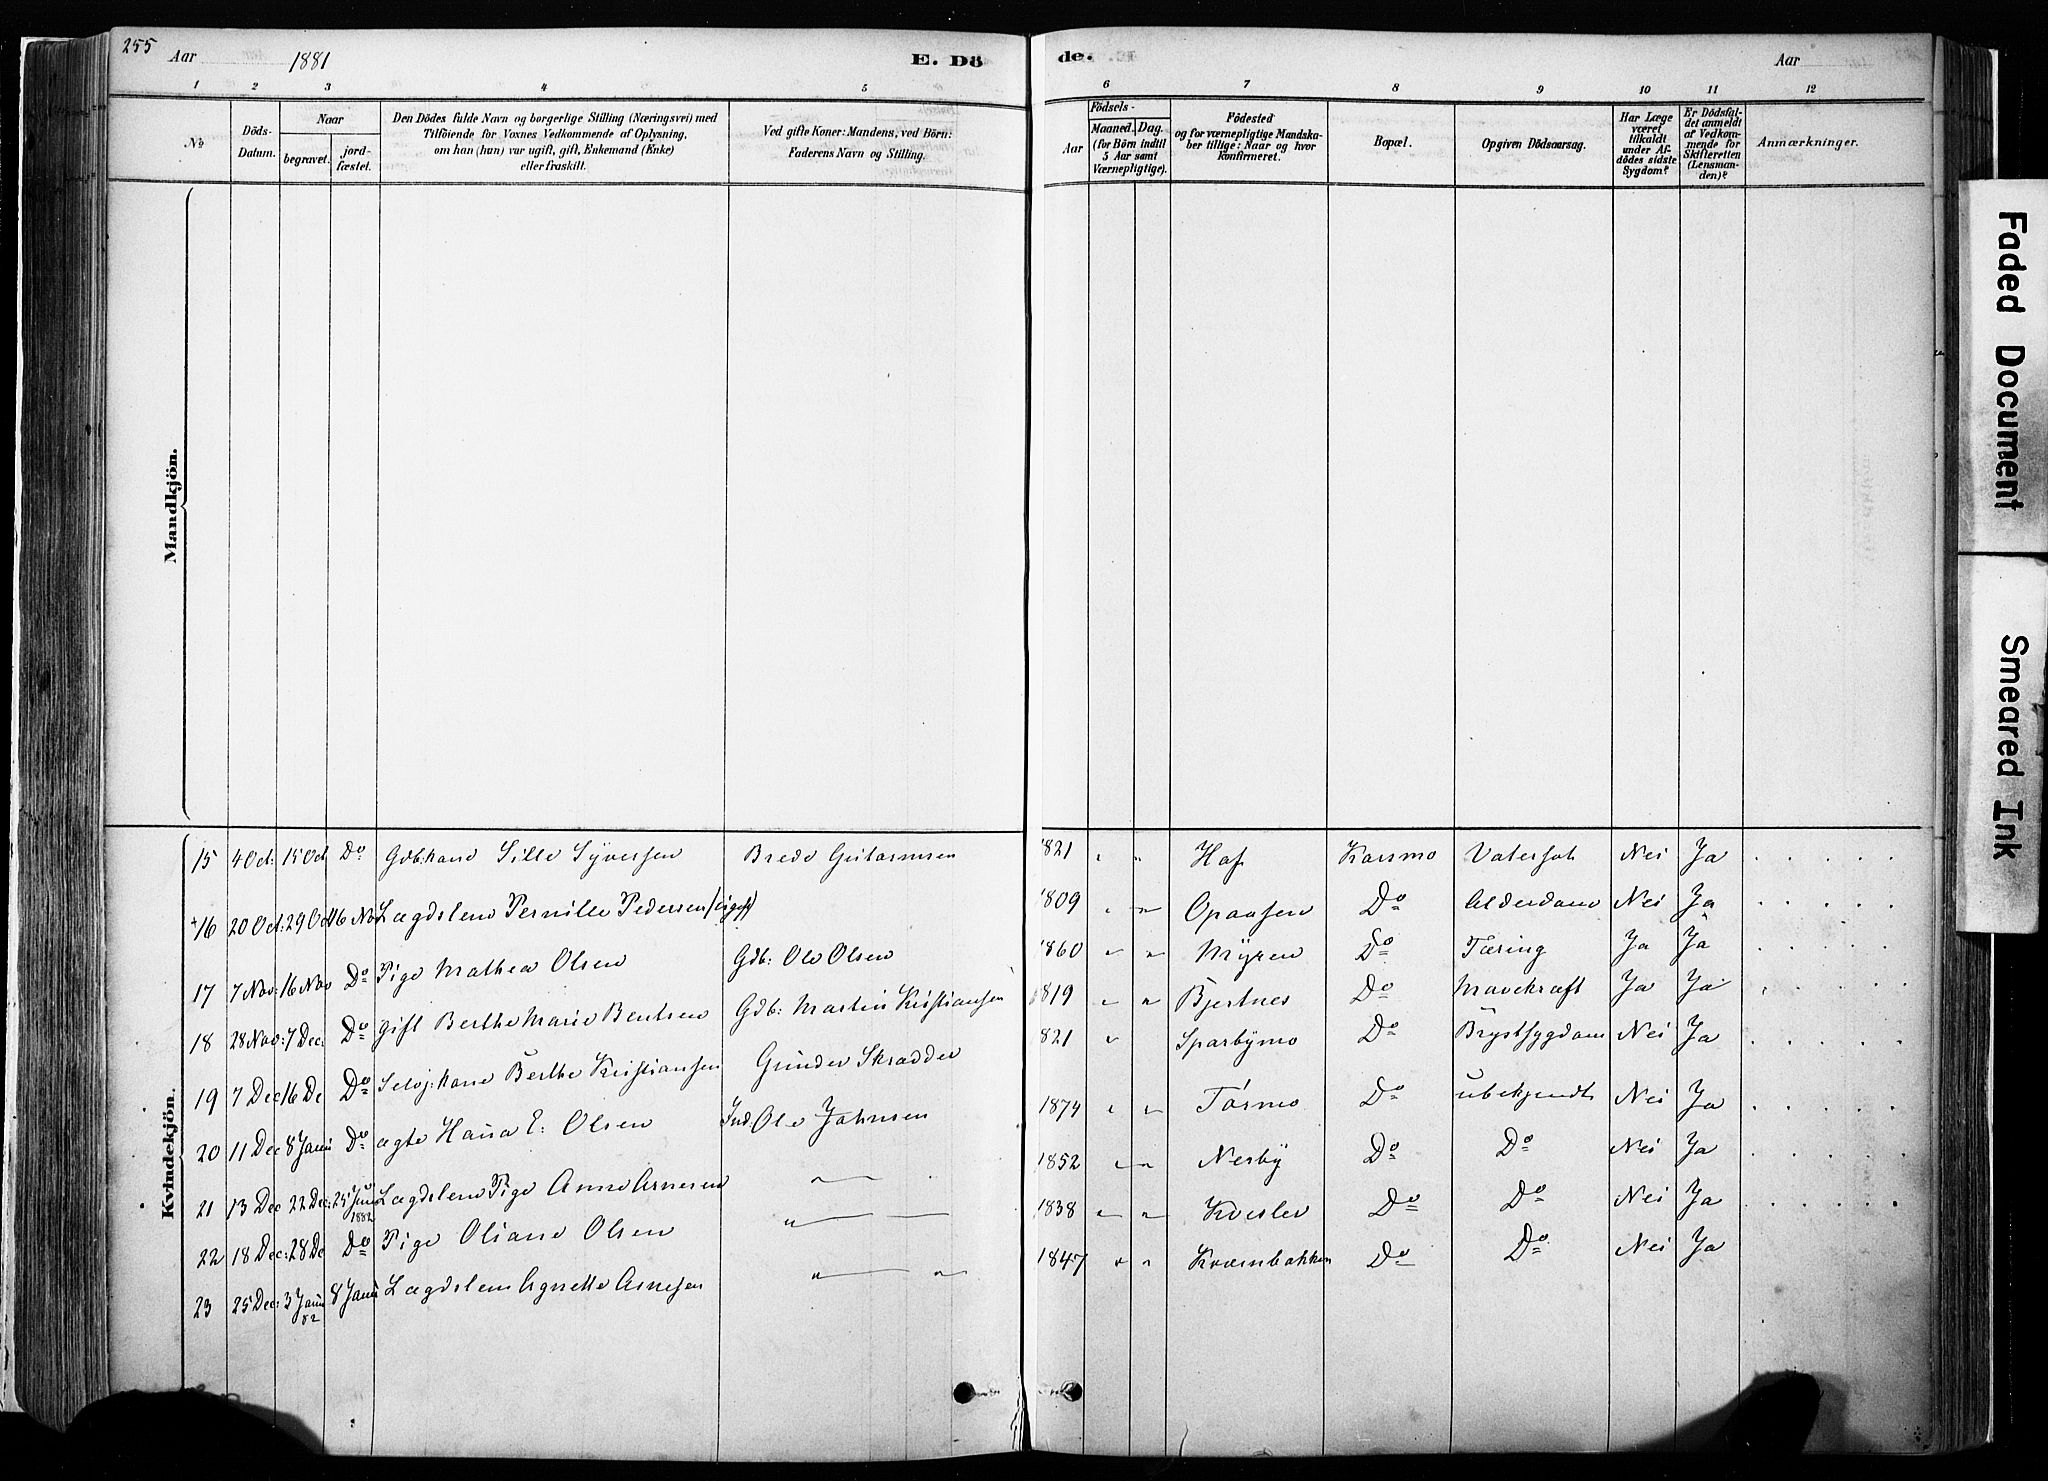 255
Aar 1881 E. Dö de. Aar
1 2 3 4 5 6 7 8 9 10 11 12
№
Döds-Datum.
Naar
begravet. jord-fæstet.
Den Dödes fulde Navn og borgerlige Stilling (Næringsvei) med
Tilföiende for Voxnes Vedkommende af Oplysning,
om han (hun) var ugift, gift, Enkemand (Enke)
eller fraskilt.
Ved gifte Koner: Mandens, ved Börn:
Faderens Navn og Stilling.
Födsels-
Aar
Maaned. Dag.
(for Börn indtil
5 Aar samt
Værnepligtige).
Födested
og for værnepligtige Mandska-
ber tillige: Naar og hvor
konfirmeret.
Bopæl.
Opgiven Dödsaarsag.
Har Læge
været
tilkaldt
under Af-
dödes sidste
Sygdom?
Er Dödsfal-
det anmeldt
af Vedkom-
mende for
Skifteretten
(Lensman-
den)?
Anmærkninger.
Mandkjön.
Kvindekjön.
15 4 Oct: 15 Oct Do Gdb:kone Sille Syversen Brede Gulbransen 1821 " " Hof Kassmo Vatersot Nei Ja
16 20 Oct: 29 Oct 16 Nov Lægdslem Pernille Pedersen (ugift) 1809 " " Opaasen Do Alderdom Nei Ja
17 7 Nov: 16 Nov Do Pige Mathea Olsen Gdb: Ole Olsen 1860 " " Myren Do Tæring Ja Ja
18 28 Nov: 7 Dec: Do gift Berthe Marie Bentsen Gdb: Martin Kristiansen 1819 " " Bjertnes Do Mavekræft Ja Ja
19 7 Dec 16 De Do Selvj:kone Berthe Kristiansen Gunder Skrædder 821 " Sparbymo Do Brystsygdom Nei Ja
20 11 Dec 8 Janu Do ægte Hana E: Olsen Ind: Ole Johnsen 1874 " " Tørmo Do ubekjendt Nei Ja
21 13 Dec 22 Dec: 25 Janu 1882 Lægdslem Pige Anne Arnesen " 1852 " " Nesby Do Do Nei Ja
22 18 Dec: 28 De Do Pige Oliane Olsen " 1838 " " Kveslev Do Do Nei Ja
23 25 Dec: 3 Janu 82 8 Janu Lægdslem Agnette Arnesen " " 1847 " " Kværnbakken Do Do Nei Ja
Faded Document
Smeared Ink